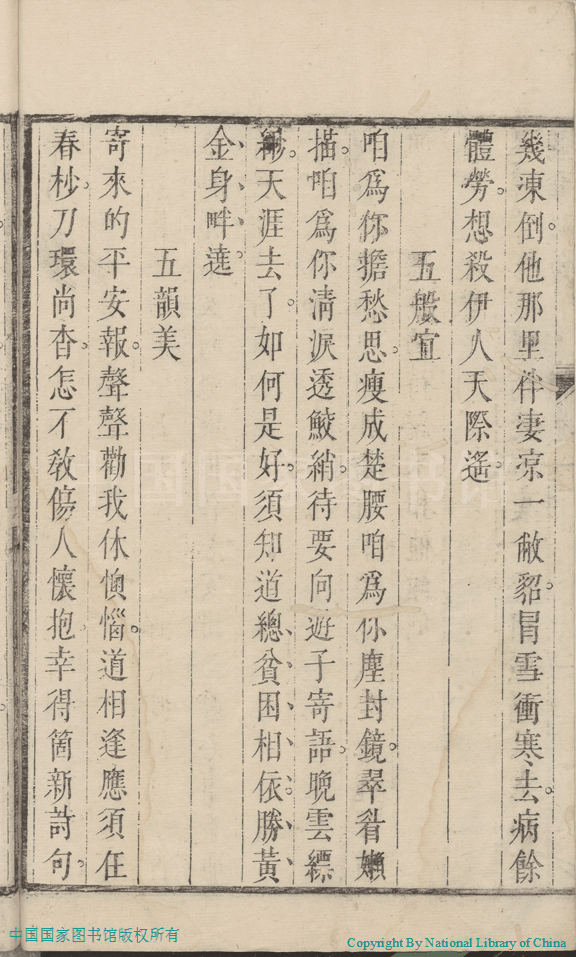 幾凍倒他那里伴凄凉一敝貂冒雪衝寒去病餘
體勞想殺伊人天際遙
五般宜
咱爲你擔愁思瘦成楚腰咱爲你塵封鏡翠眉嬾
描咱爲你清淚透鮫綃待要向遊子寄語晩雲縹
緲天涯去了如何是好須知道總貧困相依勝黃
金身畔遶
五韻美
寄來的平安報聲聲勸我休懊惱道相逢應須在
春杪刀環尚杳怎不敎傍人懷抱幸得箇新詩句
中国国家图书馆版权所有
Copyright By National Library of China